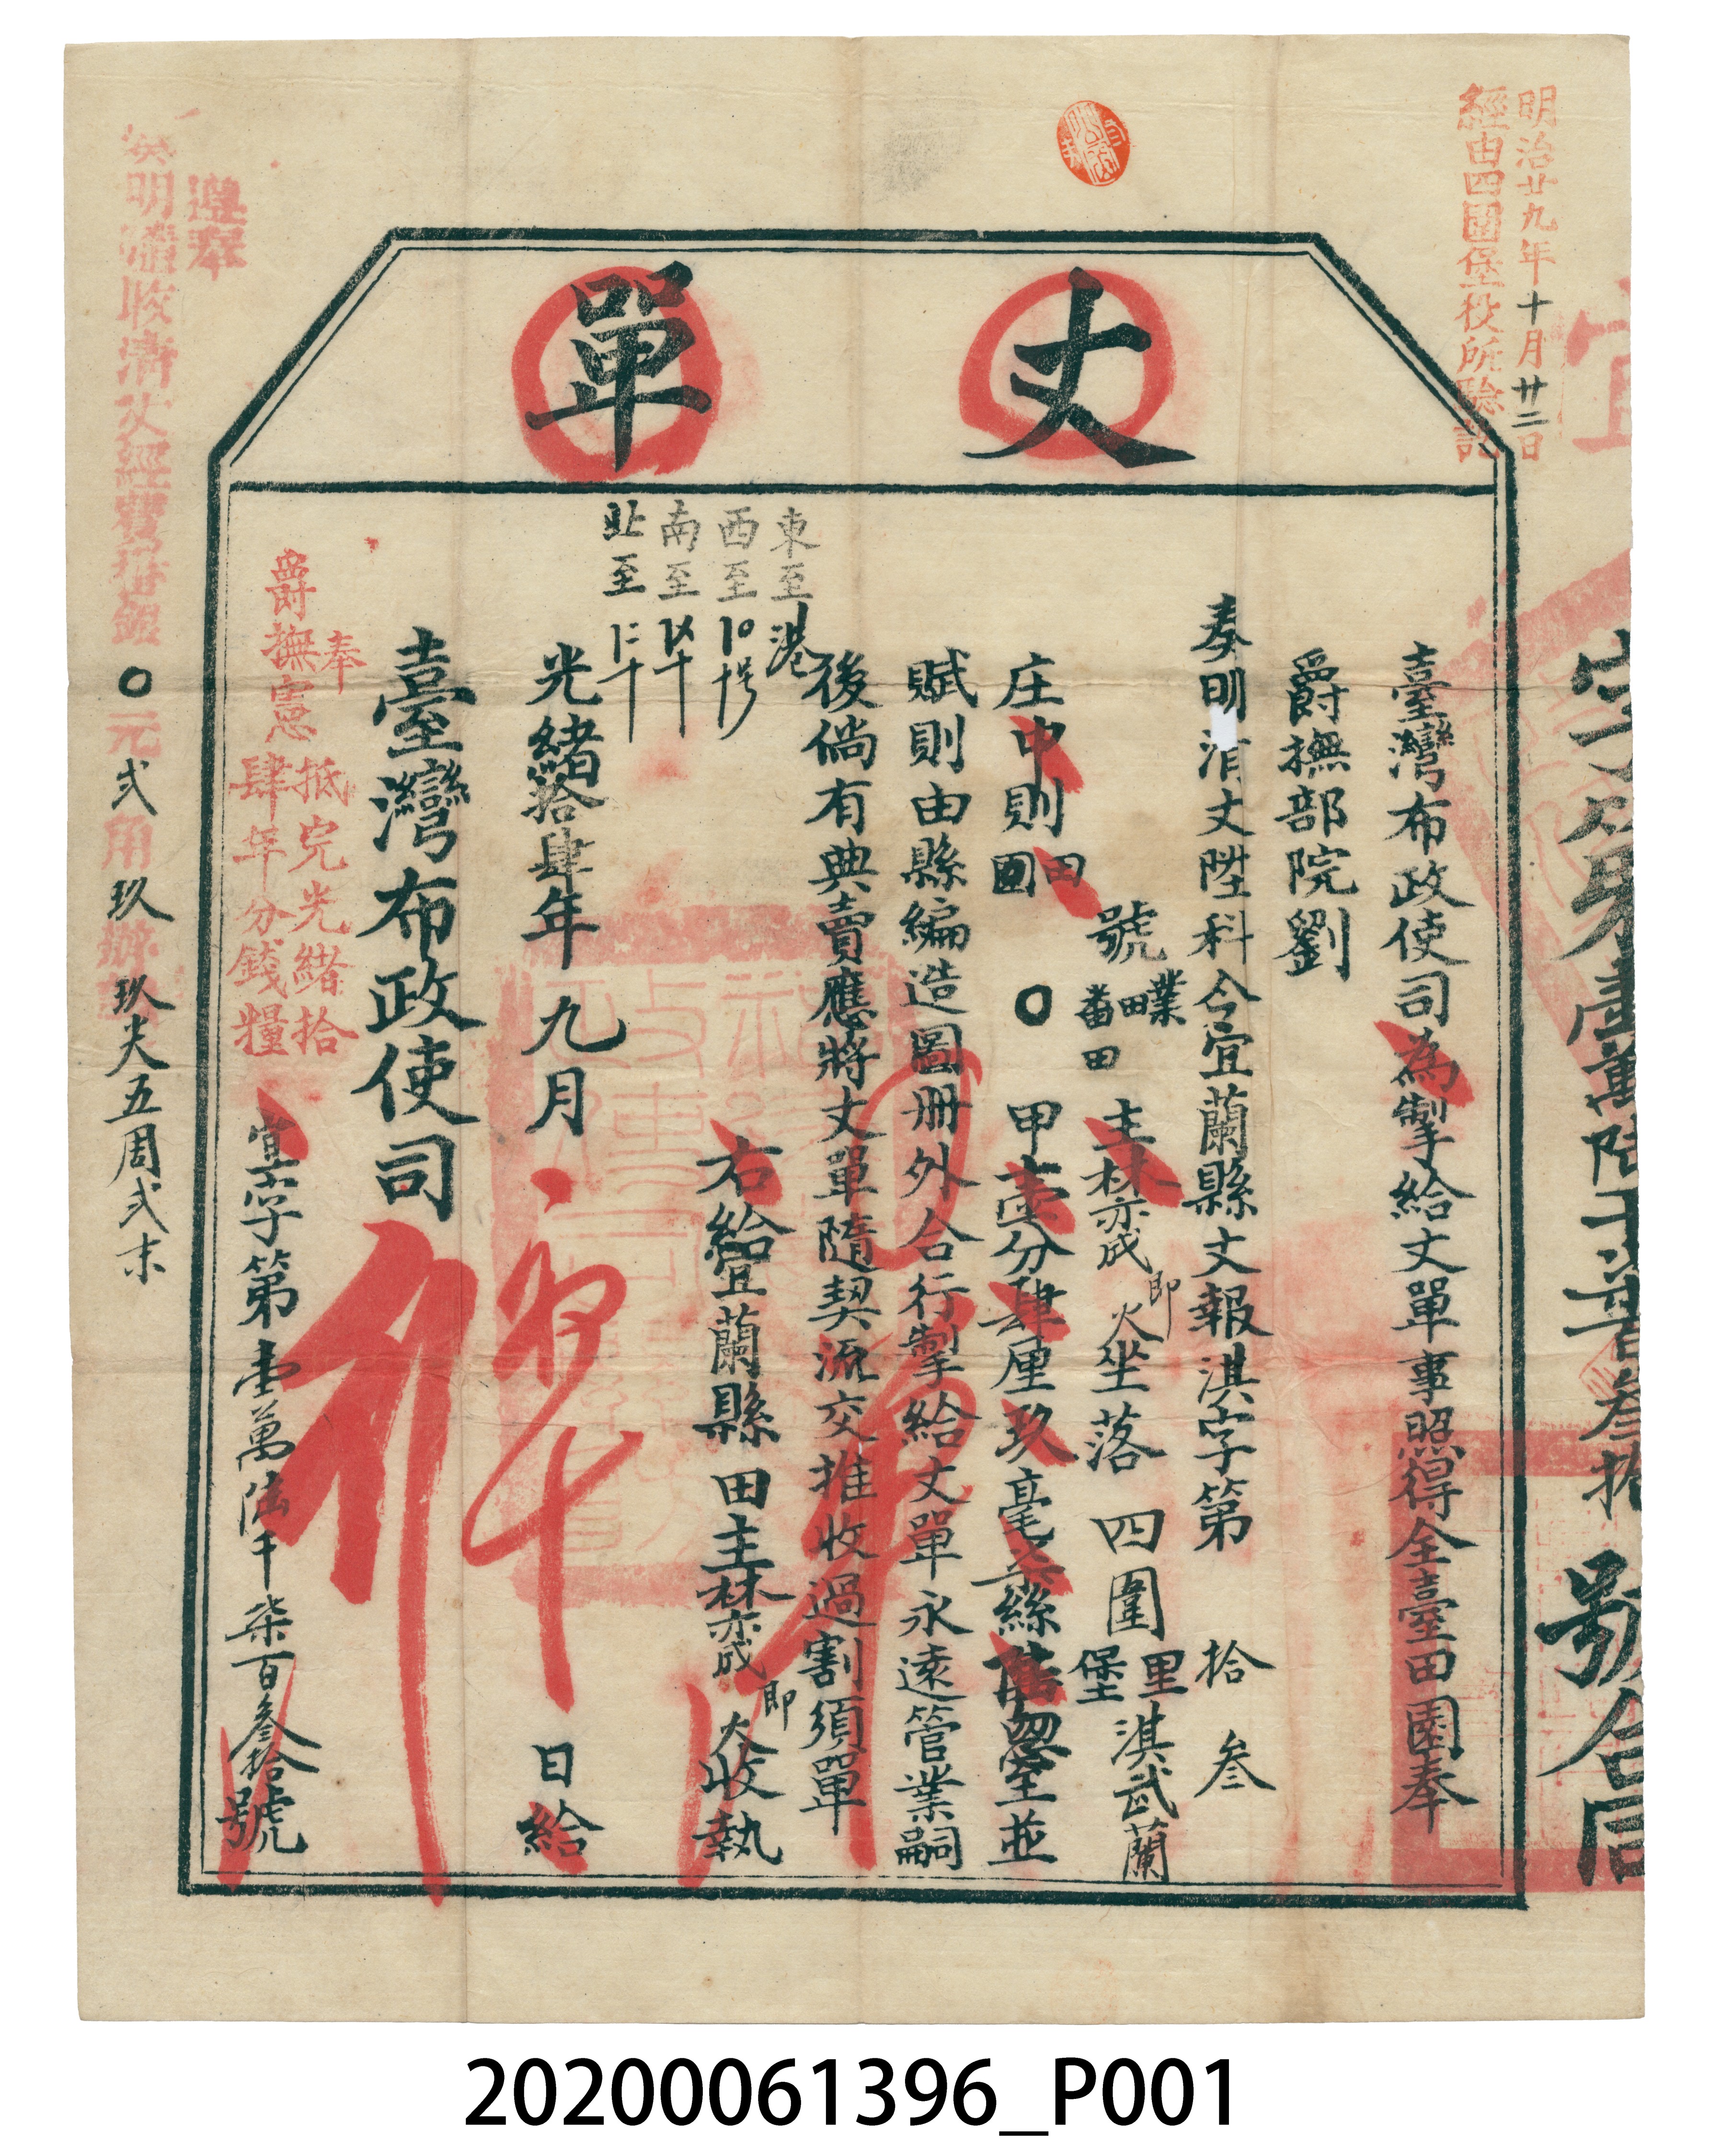 明治廿九年十月廿二日
經由四圍堡役所驗訖
丈單
臺灣布政使司為掣給丈單事照得全臺田園奉
爵撫部院劉
奏明清丈陞科今宜蘭縣丈報淇字第 拾 叁
號 業田 番田 主林亦成 即 火 坐落 四圍 里 堡 淇武蘭
庄中則 田 園 〇 甲壹分肆厘玖毫 絲 忽 並
賦則由縣編造圖冊外合行掣給丈單永遠管業嗣
後倘有典賣應將丈單隨契流交推收過割須單
右給宜蘭縣 田主林亦成 即 收執
東至港
西至
南至
北至
光緒拾肆年 九月 日給
臺灣布政使司
奉
爵撫憲
抵完光緒拾
肆年分錢糧
宜字第壹萬陆千柒百叁拾號
遵奉
奏明 收清丈經費 銀〇元弍角玖辦 玖尖五周弍末
字第壹萬陆千 叁拾 號合同
20200061396_P001